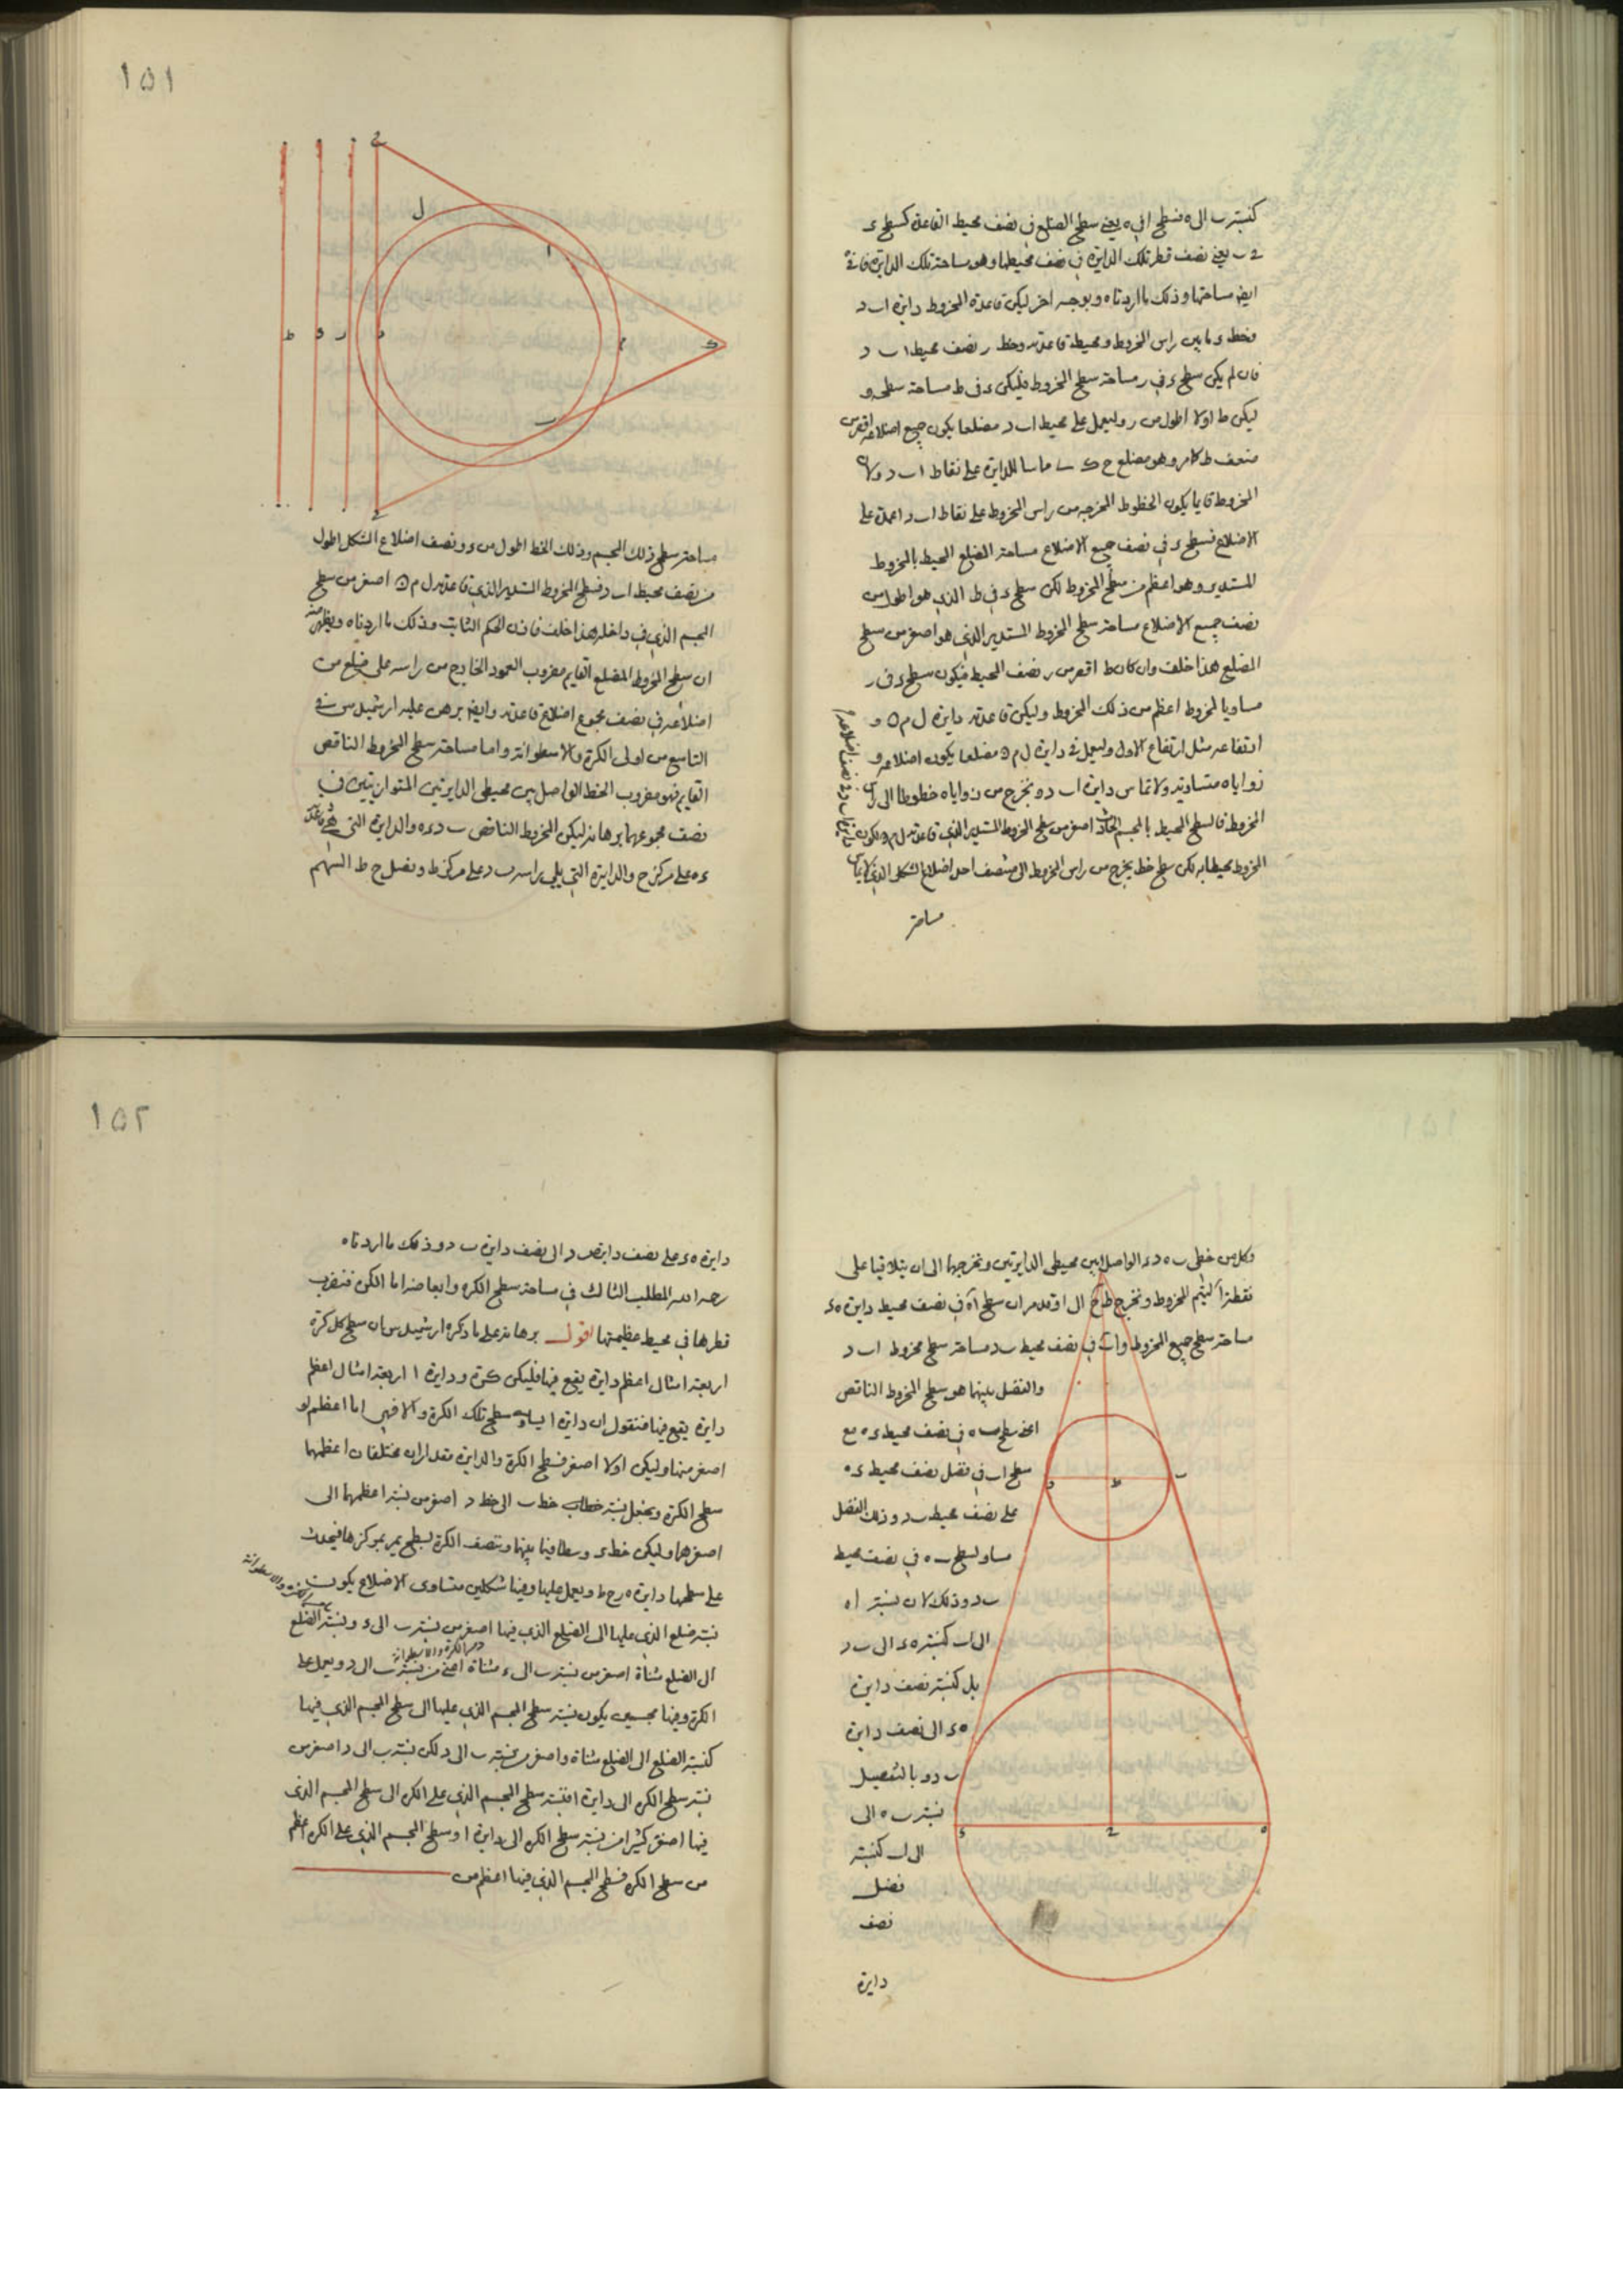 كنسبة ب الى ه فسطح ا في ه يعني سطح الضلع في نصف محيط القاعدة كسطح ء
ح ب يعني نصف قطر تلك الدايرة في نصف محيطها وهو مساحة تلك الدايرة
ايضا مساحتها وذلك ما اردناه وبوجه اخر ليكن قاعدة المخروط دايرة ا ب د
وخط ء ما بين راس المخروط ومحيط قاعدته وخط ر نصف محيط ا ب د
فان لم يكن سطح ء في ر مساحة سطح المخروط فليكن ء في ط مساحة سطحه و
ليكن ط اولا اطول من ر وليعمل على محيط ا ب د مضلعا يكون جميع اضلاعه اقصر من
ضعف ط كما مر وهو مضلع ح ك ماسا للدايرة على نقاط ا ب د ولان
المخروط قايما يكون الخطوط المخرجة من راس المخروط على نقاط ا ب د اعمدة على
الاضلاع فسطح ء في نصف جميع الاضلاع مساحة المضلع المحيط بالمخروط
المستدير وهو اعظم من سطح المخروط لكن سطح ء في ط الذي هو اطول من
نصف جميع الاضلاع مساحة سطح المخروط المستدير الذي هو اصغر من سطح
المضلع هذا خلف وان كان ط اقصر من ر نصف المحيط فيكون سطح ء في ر
مساويا لمخروط اعظم من ذلك المخروط وليكن قاعدته دايرة ل م ن و
ارتفاعه مثل ارتفاع الاول وليعمل في دايرة ل م ن مضلعا يكون اضلاعه و
زواياه متساوية ولا تماس دايرة ا ب د ونخرج من زواياه خطوطا الى راس
المخروط فالسطح المحيط بالمجسم الحادث اصغر من سطح المخروط المستدير الذي قاعدته ل م ن ويكون
المخروط محيطا به لكن سطح خط يخرج من راس المخروط الى منتصف احد اضلاع الشكل الذي
مساحة
١٥١
ح
ل
ا
ط ء ر د
م
ك
ب
مساحة سطح ذلك المجسم وذلك الخط اطول من ء ونصف اضلاع الشكل اطول
من نصف محيط ا ب د فسطح المخروط المستدير الذي قاعدته ل م ن اصغر من سطح
المجسم الذي في داخله هذا خلف فاذن الحكم الثابت وذلك ما اردناه ويظهر منه
ان سطح المخروط المضلع القايم مضروب العمود الخارج من راسه على ضلع من
اضلاعه في نصف مجموع اضلاع قاعدته وايضا برهن عليه ارشميدس في
التاسع من اولى الكرة والاسطوانة واما مساحة سطح المخروط الناقص
القايم فهو مضروب الخط الواصل بين محيطي الدايرتين المتوازيتين في
نصف مجموعهما برهانه ليكن المخروط الناقص ب د ء ه والدايرة التي هي قاعدة
ء ه على مركز ح والدايرة التي يلي راسه ب د على مركز ط ونصل ح ط السهم
وكل من خطي ب ه د ء الواصل بين محيطي الدايرتين ونخرجهما الى ان يتلاقيا على
نقطة ا ليتم المخروط ونخرج ط ح الى ا وقد مر ان سطح ا ه في نصف محيط دايرة ه ء
مساحة سطح جميع المخروط و ا ب في نصف محيط ب د مساحة سطح مخروط ا ب د
والفضل بينهما هو سطح المخروط الناقص
اعني سطح ب ه في نصف محيط ء ه مع
سطح ا ب في فضل نصف محيط ء ه
على نصف محيط ب د وذلك الفضل
مساو لسطح ب ه في نصف محيط
ب د وذلك لان نسبة ا ه
الى ا ب كنسبة ه ء الى ب د
بل كنسبة نصف دايرة
ه ء الى نصف دايرة
ب د وبالتفصيل
نسبة ب ه الى
الى ا ب كنسبة
فضل
نصف
دايرة
د ط ب
ء ح ه
١٥٢
دايرة ه ء على نصف دايرة ب د الى نصف دايرة ب د وذلك ما اردناه
رحمه الله المطلب الثالث في مساحة سطح الكرة وابعاضها اما الكرة فنضرب
قطرها في محيط عظيمتها اقول برهانه على ما ذكره ارشميدس ان سطح كل كرة
اربعة امثال اعظم دايرة يقع فيها فليكن كرة ودايرة ا اربعة امثال اعظم
دايرة يقع فيها فنقول ان دايرة ا يساوي سطح تلك الكرة والا فهي اما اعظم او
اصغر منها وليكن اولا اصغر فسطح الكرة والدايرة مقداران مختلفان اعظمهما
سطح الكرة ونجعل نسبة خط ب الى خط د اصغر من نسبة اعظمهما الى
اصغرهما وليكن خط ء وسطا فيما بينهما وننصف الكرة بسطح يمر بمركزها فيحدث
على سطحها دايرة ه ر ح ط ويعمل عليها وفيها شكلين متساوي الاضلاع يكون
نسبة ضلع الذي عليها الى الضلع الذي فيها اصغر من نسبة ب الى ء ونسبة الضلع
الى الضلع مثناة اصغر من نسبة ب الى ء مثناة اعني من نسبة ب الى د ويعمل على
الكرة وفيها مجسمين يكون نسبة سطح المجسم الذي عليها الى سطح المجسم الذي فيها
كنسبة الضلع الى الضلع مثناة واصغر من نسبة ب الى د لكن نسبة ب الى د اصغر من
نسبة سطح الكرة الى دايرة ا فنسبة سطح المجسم الذي على الكرة الى سطح المجسم الذي
فيها اصغر كثيرا من نسبة سطح الكرة الى دايرة ا وسطح المجسم الذي على الكرة اعظم
من سطح الكرة فسطح المجسم الذي فيها اعظم من